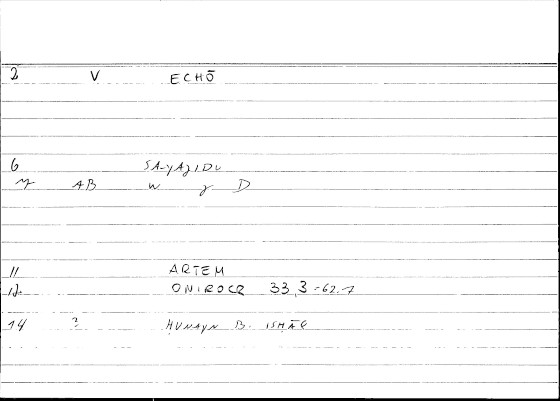 2 V ECHŌ
6 SA-YAZIDU
AB w z D
11 ARTEM
12. ONIROCR 33,3-62.1
14 ? HUNAYN B. ISHĀQ